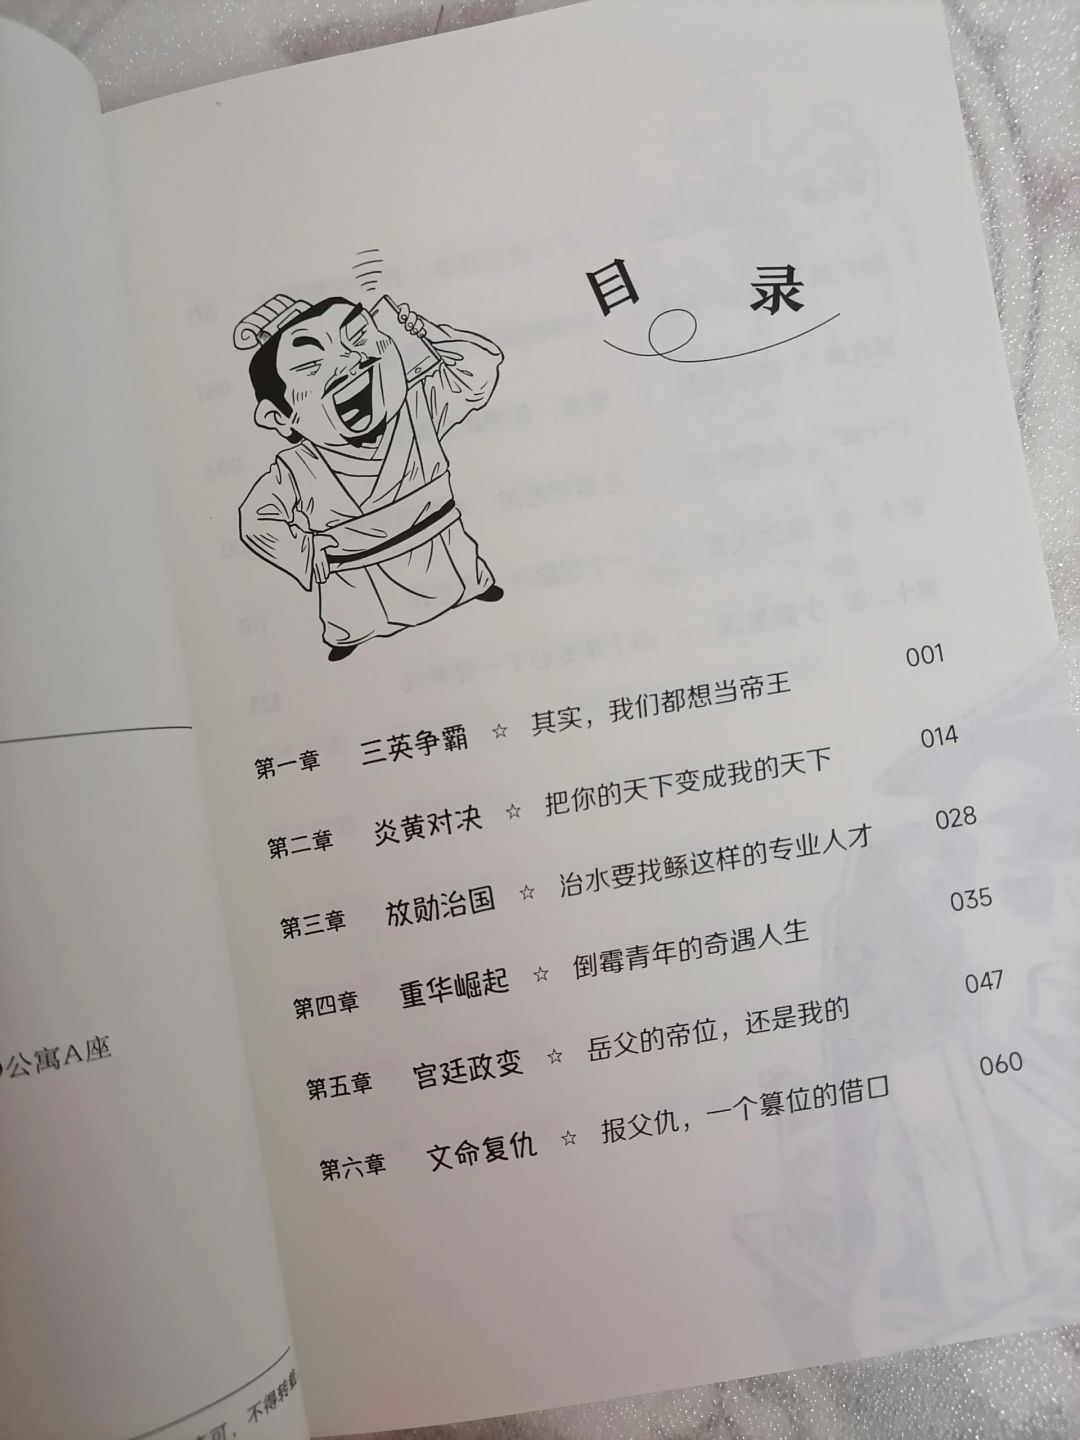 目 录
第一章 三英争霸 ☆ 其实，我们都想当帝王 001
第二章 炎黄对决 ☆ 把你的天下变成我的天下 014
第三章 放勋治国 ☆ 治水要找鲧这样的专业人才 028
第四章 重华崛起 ☆ 倒霉青年的奇遇人生 035
第五章 宫廷政变 ☆ 岳父的帝位，还是我的 047
第六章 文命复仇 ☆ 报父仇，一个篡位的借口 060
公寓A座
可，不得转载